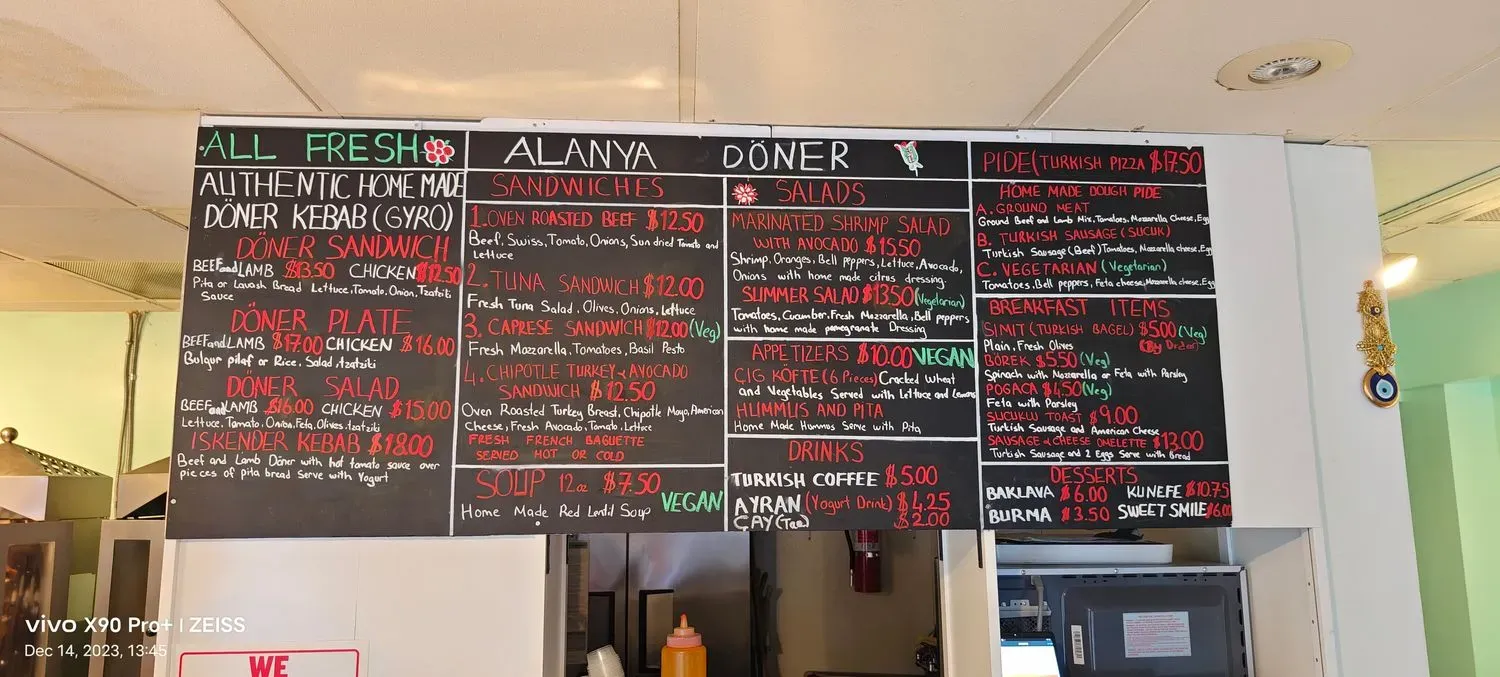 ALL FRESH
AUTHENTIC HOME MADE
DÖNER KEBAB (GYRO)
DÖNER SANDWICH
BEEF and LAMB $13.50 CHICKEN $12.50
Pita or Lavash Bread Lettuce, Tomato, Onion, Tzatziki
Sauce
DÖNER PLATE
BEEF and LAMB $17.00 CHICKEN $16.00
Bulgur pilaf or Rice, Salad, tzatziki
DÖNER SALAD
BEEF and LAMB $16.00 CHICKEN $15.00
Lettuce, Tomato, Onion, Feta, Olives, tzatziki
ISKENDER KEBAB $18.00
Beef and Lamb Döner with hot tomato sauce over
pieces of pita bread Serve with Yogurt
ALANYA DÖNER
SANDWICHES
1. OVEN ROASTED BEEF $12.50
Beef, Swiss, Tomato, Onions, Sun dried Tomato and
Lettuce
2. TUNA SANDWICH $12.00
Fresh Tuna Salad, Olives, Onions, Lettuce
3. CAPRESE SANDWICH $12.00 (Veg)
Fresh Mozzarella, Tomatoes, Basil Pesto
4. CHIPOTLE TURKEY & AVOCADO
SANDWICH $12.50
Oven Roasted Turkey Breast, Chipotle Mayo, American
Cheese, Fresh Avocado, Tomato, Lettuce
FRESH FRENCH BAGUETTE
SERVED HOT OR COLD
SOUP 12oz $7.50
VEGAN
Home Made Red Lentil Soup
SALADS
MARINATED SHRIMP SALAD
WITH AVOCADO $15.50
Shrimp, Oranges, Bell peppers, Lettuce, Avocado,
Onions with home made citrus dressing.
SUMMER SALAD $13.50 (Vegetarian)
Tomatoes, Cucumber, Fresh Mozzarella, Bell peppers
with home made pomegranate Dressing
APPETIZERS $10.00 VEGAN
ÇIG KÖFTE (6 Pieces) Cracked Wheat
and Vegetables Served with Lettuce and Lemons
HUMMUS AND PITA
Home Made Hummus Serve with Pita
DRINKS
TURKISH COFFEE $5.00
AYRAN (Yogurt Drink) $4.25
ÇAY (Tea) $2.00
PIDE (TURKISH PIZZA $17.50
HOME MADE DOUGH PIDE
A. GROUND MEAT
Ground Beef and Lamb Mix, Tomatoes, Mozzarella Cheese, Egg
B. TURKISH SAUSAGE (SUCUK)
Turkish Sausage (Beef) Tomatoes, Mozzarella cheese, Egg
C. VEGETARIAN (Vegetarian)
Tomatoes, Bell peppers, Feta cheese, Mozzarella cheese, Egg
BREAKFAST ITEMS
SIMIT (TURKISH BAGEL) $5.00 (Veg)
Plain, Fresh Olives (By Order)
BÖREK $5.50 (Veg)
Spinach with Mozzarella or Feta with Parsley
POGACA $4.50 (Veg)
Feta with Parsley
SUCUKLU TOAST $9.00
Turkish Sausage and American Cheese
SAUSAGE & CHEESE OMELETTE $13.00
Turkish Sausage and 2 Eggs Serve with Bread
DESSERTS
BAKLAVA $6.00 KUNEFE $10.75
BURMA $3.50 SWEET SMILE $6.00
vivo X90 Pro+ | ZEISS
Dec 14, 2023, 13:45
WE